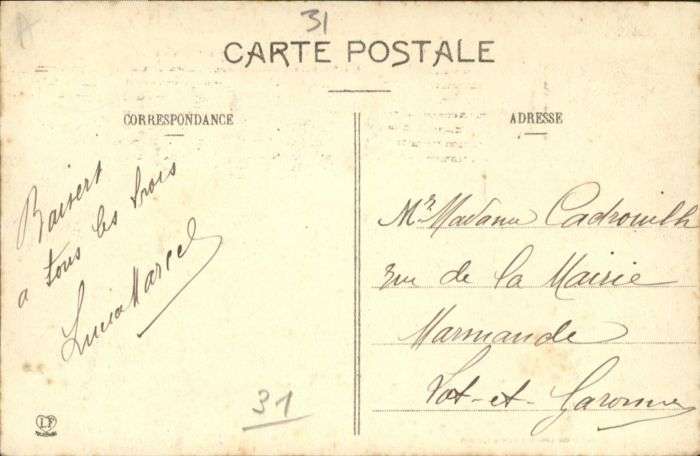 31
CARTE POSTALE
CORRESPONDANCE
Baisers
a tous les trois
Lucia Marcel
31
LF
ADRESSE
Mr Madame Cadrouilh
rue de la Mairie
Marmande
Lot-et-Garonne